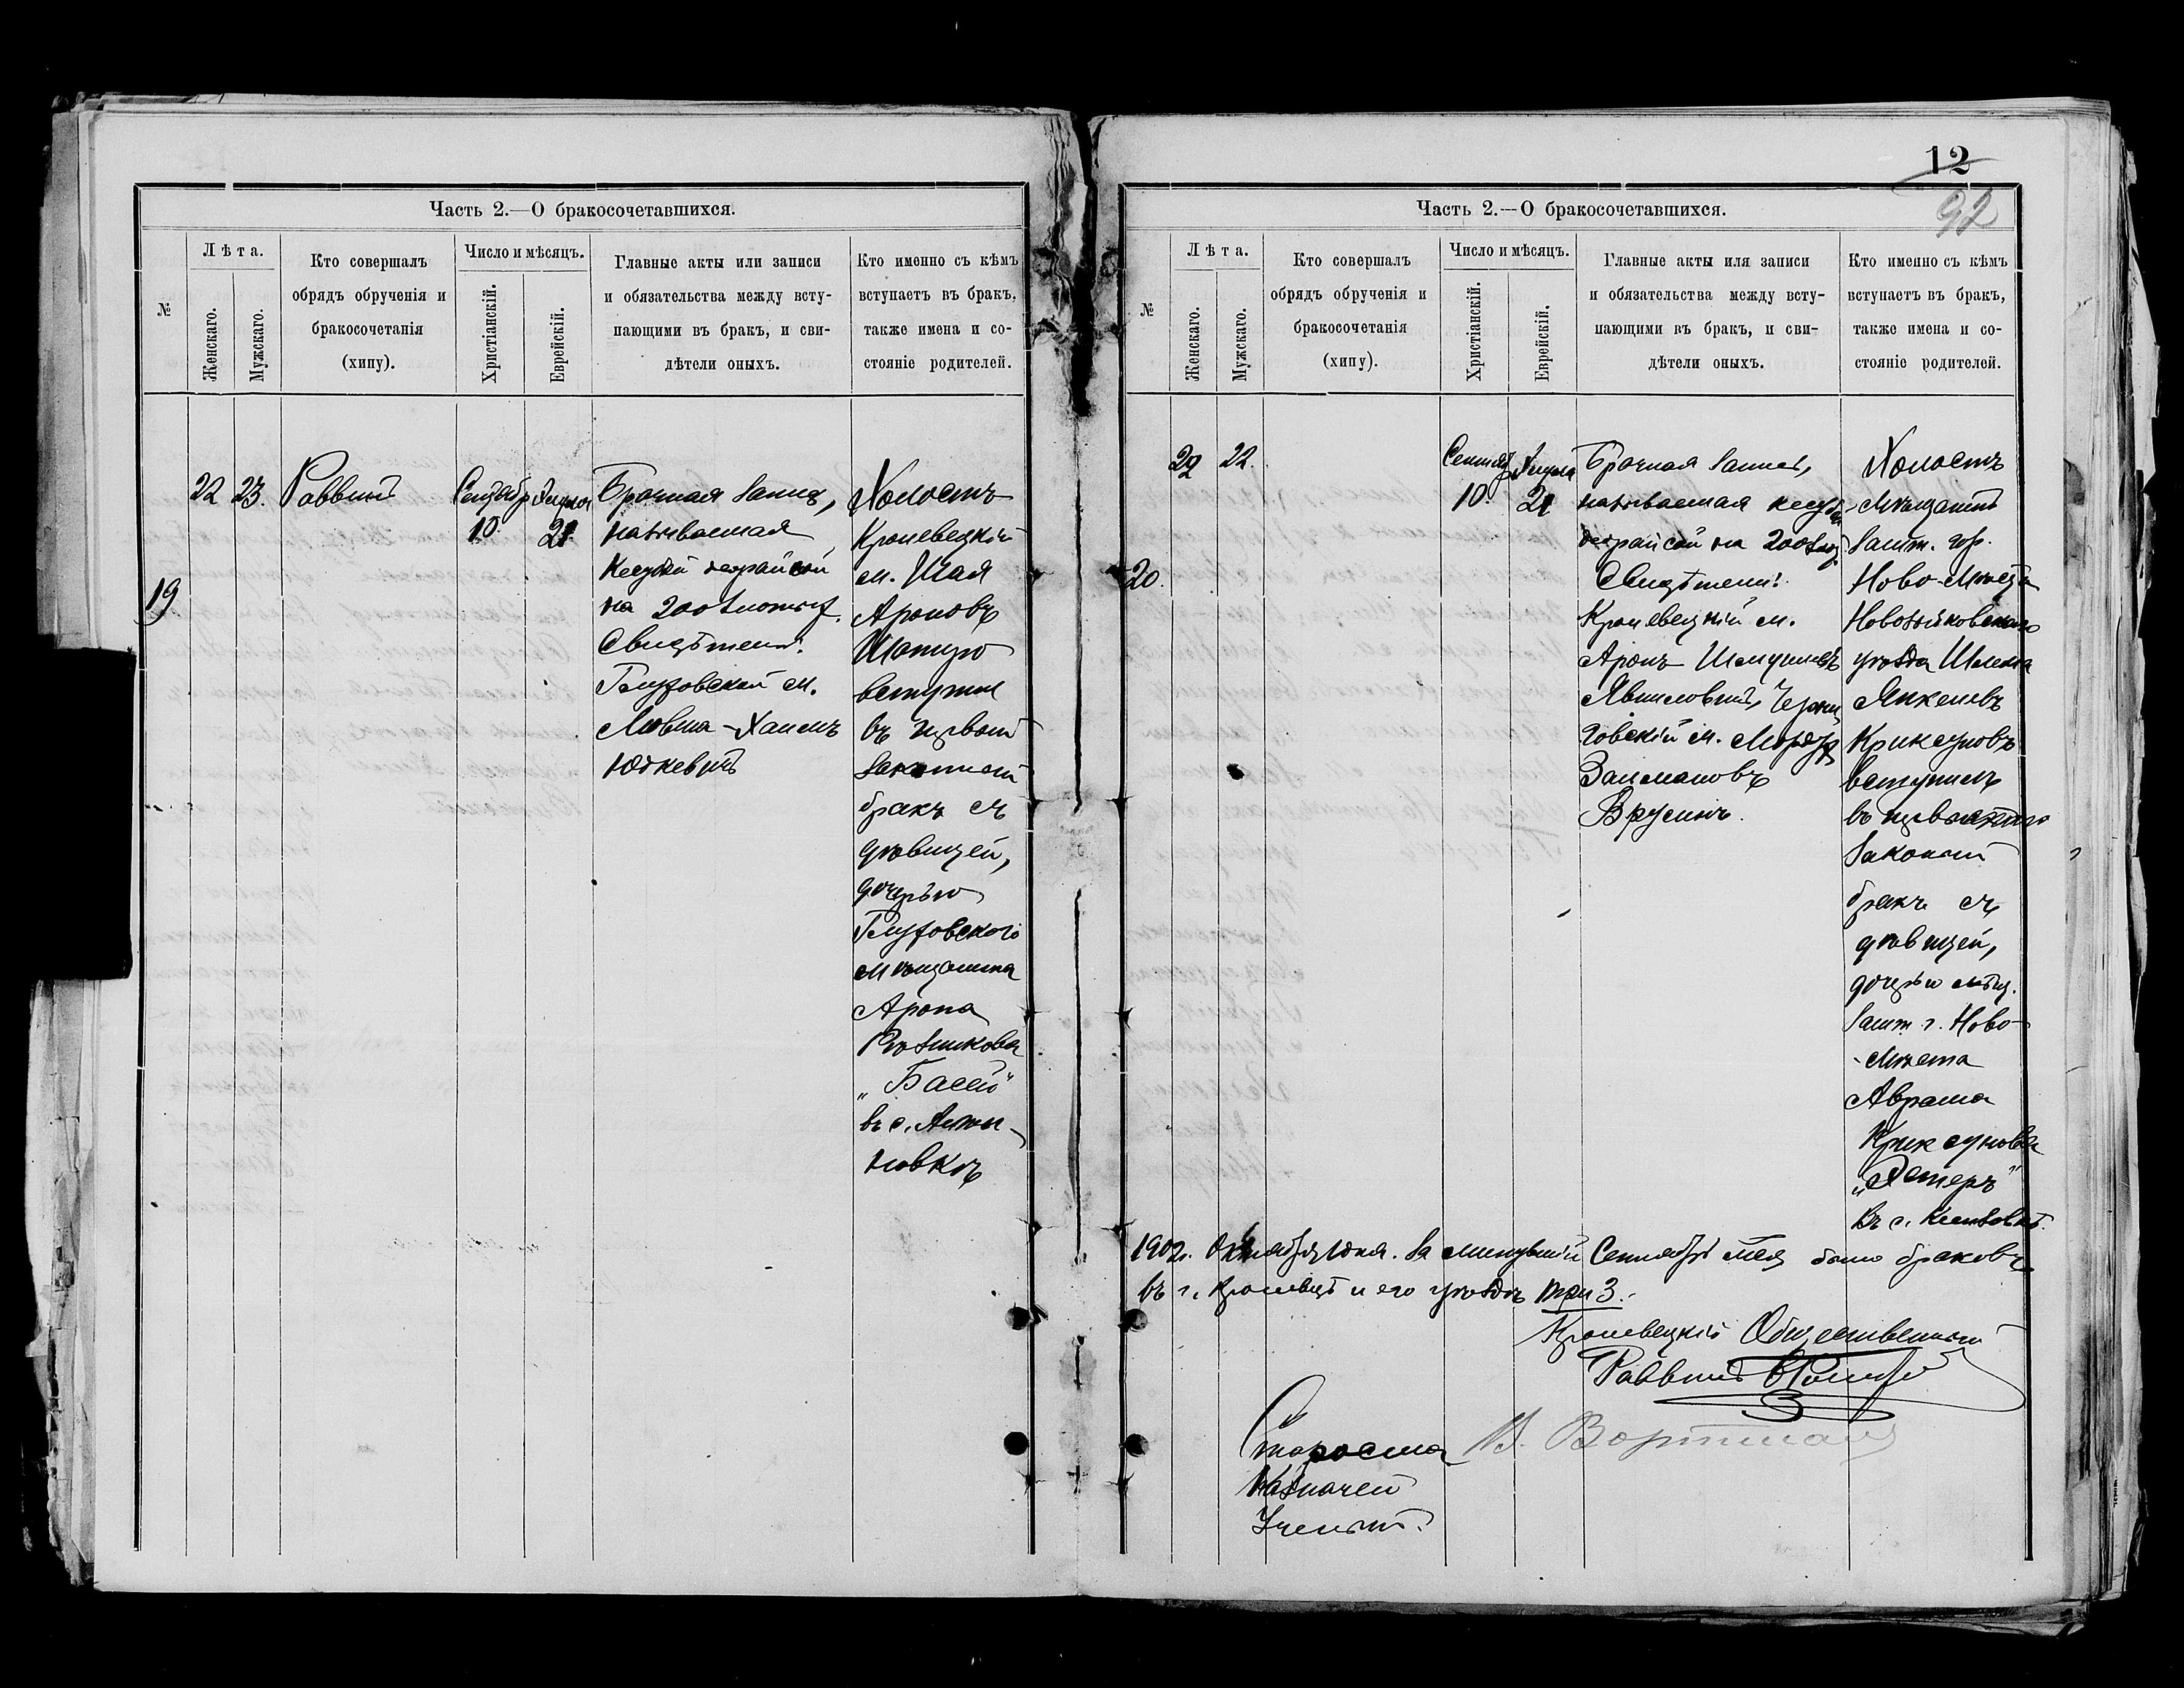 Часть 2.—О бракосочетавшихся.
№
Лѣта.
Женскаго.
Мужскаго.
Кто совершалъ
обрядъ обрученія и
бракосочетанія
(хипу).
Число и мѣсяцъ.
Христіанскій.
Еврейскій.
Главные акты или записи
и обязательства между всту-
пающими въ бракъ, и сви-
дѣтели оныхъ.
Кто именно съ кѣмъ
вступаетъ въ бракъ,
также имена и со-
стояніе родителей.
19
22
23.
Раввинъ
Сентябр
10
21
Брачная запись,
называемая
на 200 злотыхъ.
Свидѣтели:
Глуховской м.
Левша-Хаимъ
Юдкевичъ
Холостъ
Кролевецкій
м. Шая
Ароновъ
Шапиро
вступил
въ первый
законный
бракъ съ
дѣвицей,
дочерью
Глуховского
мѣщанина
Арона
Рѣзникова
„Басей"
въ с. Алты-
новкѣ
12
92
Часть 2.—О бракосочетавшихся.
№
Лѣта.
Женскаго.
Мужскаго.
Кто совершалъ
обрядъ обрученія и
бракосочетанія
(хипу).
Число и мѣсяцъ.
Христіанскій.
Еврейскій.
Главные акты или записи
и обязательства между всту-
пающими въ бракъ, и сви-
дѣтели оныхъ.
Кто именно съ кѣмъ
вступаетъ въ бракъ,
также имена и со-
стояніе родителей.
20.
22
22.
Сентяб
10.
21
Брачная запись,
называемая
на 200 злот.
Свидѣтели:
Кролевецкій м.
Аронъ
Черни
говскій м.
Залмановъ
Врусинъ.
Холостъ
Мѣщанинъ
Зашт. гор.
Ново-Мѣста
Новозыбковскаго
уѣзда
Янкелевъ
Криксуновъ
вступилъ
въ первый
законный
бракъ съ
дѣвицей,
дочерью мѣщ.
Зашт. г. Ново-
-Мѣста
Аврама
Криксунова
„Эстеръ"
въ с.
1902г. Октября 1 дня. За минувшій Сентябрь м-цъ было браковъ
въ г. Кролевцѣ и его уѣздѣ три 3.
Кролевецкій Общественный
Раввинъ
Староста
Казначей
Ученый.